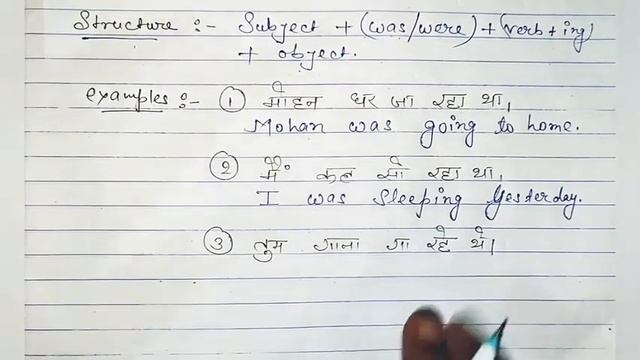 Structure :- Subject + (was/were) + (verb + ing)
+ object.
examples :- ① मोहन घर जा रहा था,
Mohan was going to home.
② मैं कल सो रहा था,
I was Sleeping Yesterday.
③ तुम गाना गा रहे थे।